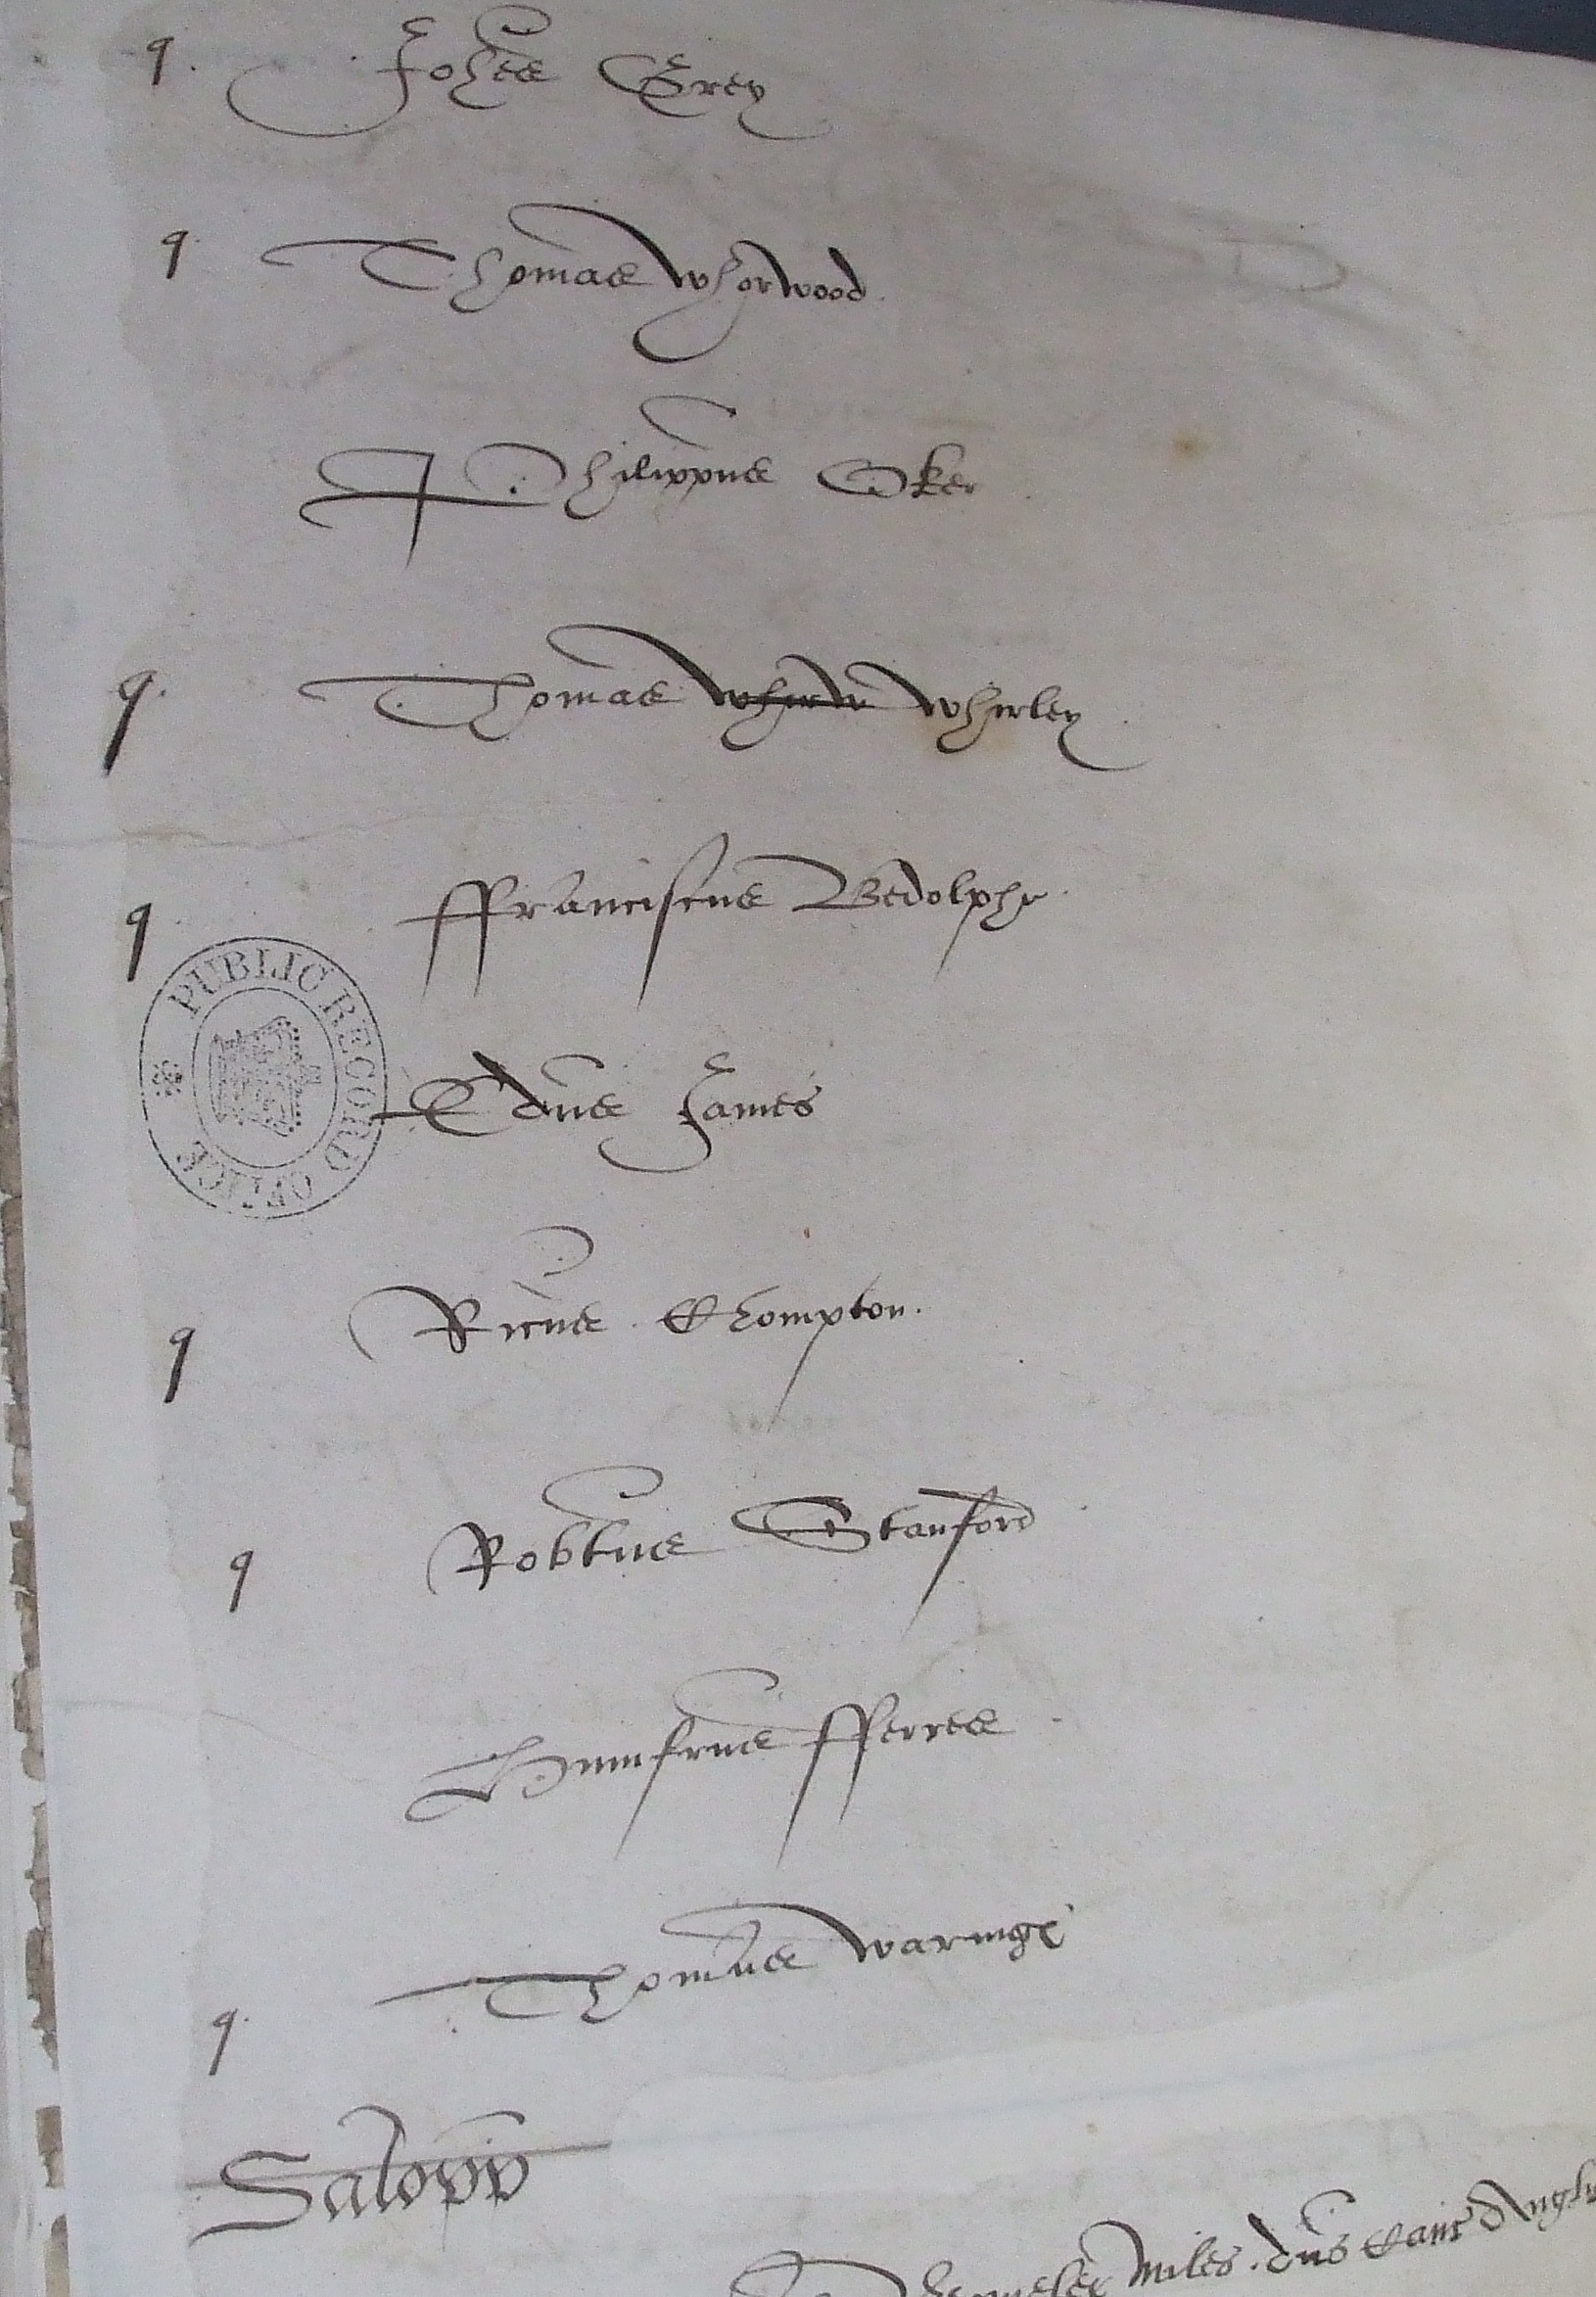 q. Johes Grey
q. Thomas Whorwood.
Philippus Oker
q. Thomas Whirw Whirley
q ffranciscus Bedolphe
PUBLIC RECORD OFFICE
Edus James
q Ricus Chompton.
q Robtus Stanford
Humfrus fferres
q. Thomas Waringe
Salopp
miles. dns Canc Angl